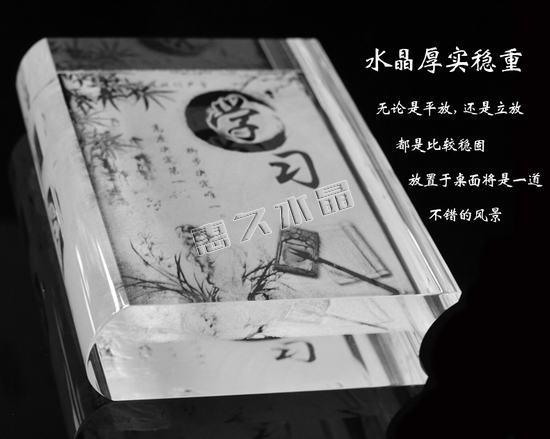 水晶厚实稳重
无论是平放，还是立放
都是比较稳固
放置于桌面将是一道
不错的风景
学
习
惠久水晶